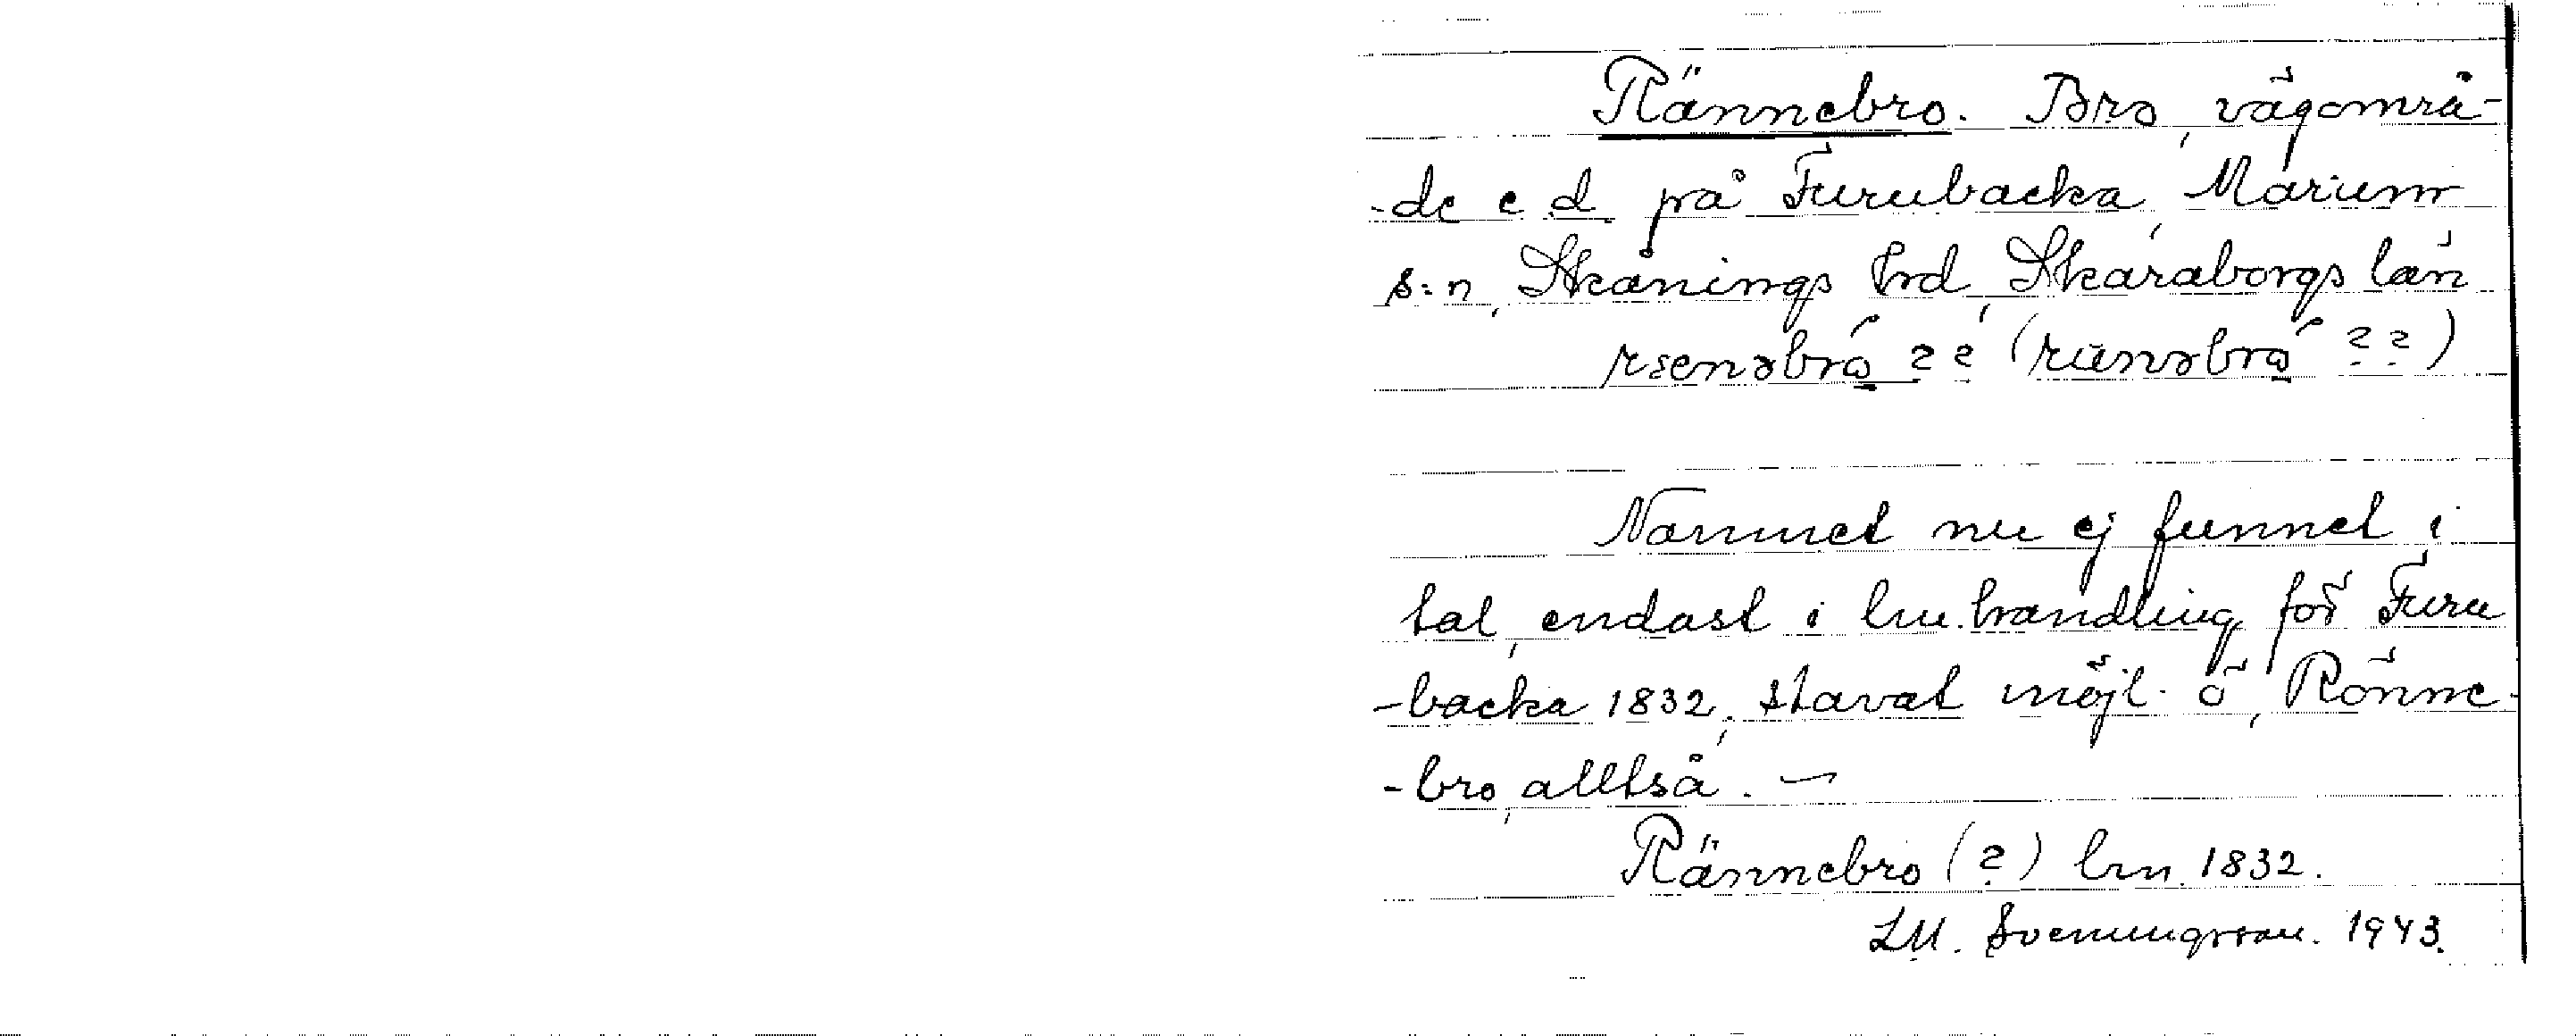 Rännebro. Bro, vägområ-
-de e d på Furubacka, Marum
s:n, Skånings hrd, Skaraborgs län
Namnet nu ej funnet i
tal, endast i lm.handling för Furu
-backa 1832, stavat möjl. ö, Rönne-
-bro, alltså. –
Rännebro (?) lm. 1832.
LM. Svenungsson. 1943.